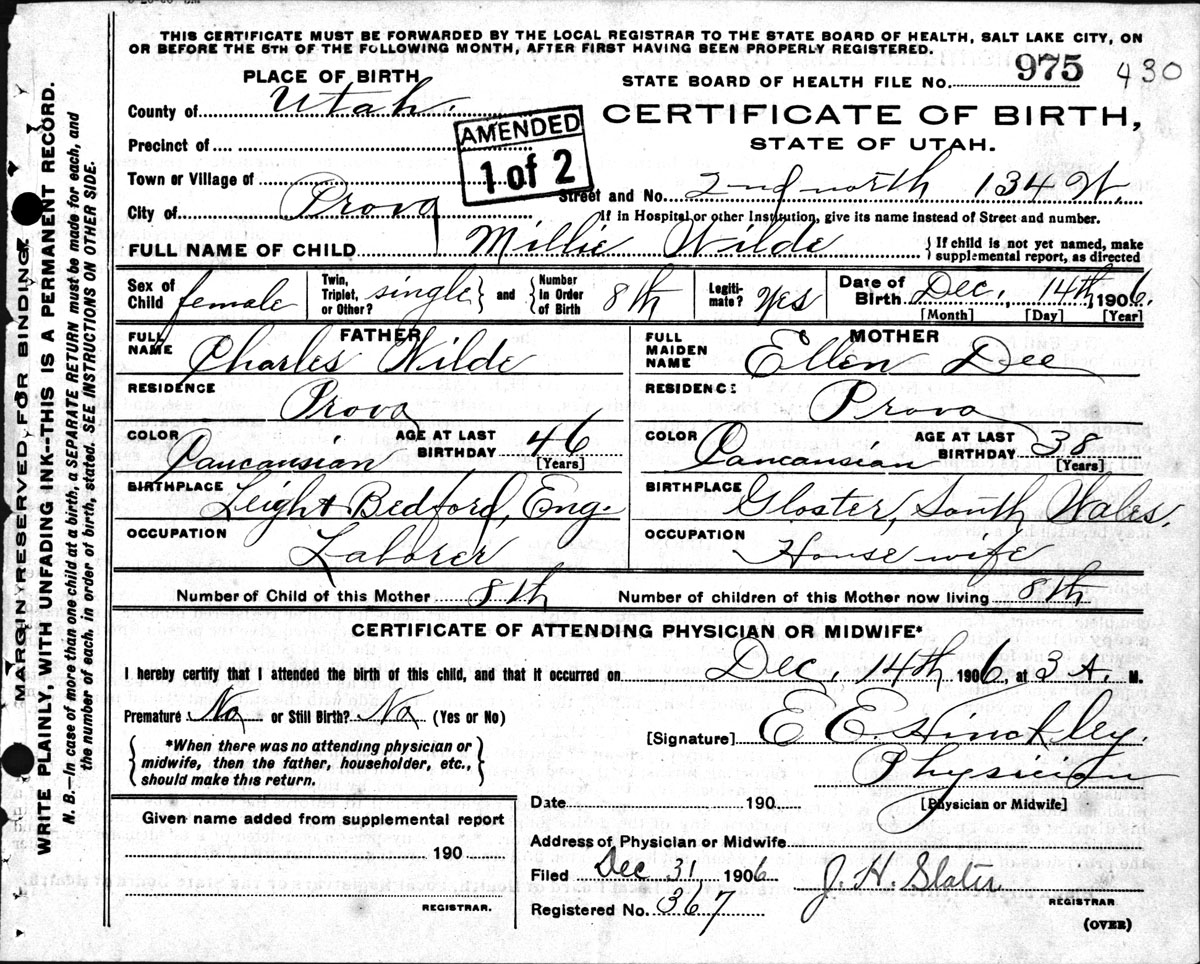 THIS CERTIFICATE MUST BE FORWARDED BY THE LOCAL REGISTRAR TO THE STATE BOARD OF HEALTH, SALT LAKE CITY, ON
OR BEFORE THE 5TH OF THE FOLLOWING MONTH, AFTER FIRST HAVING BEEN PROPERLY REGISTERED.
PLACE OF BIRTH
STATE BOARD OF HEALTH FILE No. 975 430
County of Utah.
CERTIFICATE OF BIRTH,
STATE OF UTAH.
AMENDED
1 of 2
Precinct of
Town or Village of
Street and No. 2nd north 134 W.
City of Provo
If in Hospital or other Institution, give its name instead of Street and number.
FULL NAME OF CHILD Millie Wilde
If child is not yet named, make
supplemental report, as directed
Sex of Child female
Twin, Triplet, or Other? single and Number In Order of Birth 8th
Legitimate? Yes
Date of Birth Dec., 14th 1906.
[Month] [Day] [Year]
FATHER
FULL NAME Charles Wilde
MOTHER
FULL MAIDEN NAME Ellen Dee
RESIDENCE Provo
RESIDENCE Provo
COLOR Caucansian AGE AT LAST BIRTHDAY 46 [Years]
COLOR Caucansian AGE AT LAST BIRTHDAY 38 [Years]
BIRTHPLACE Leight Bedford, Eng.
BIRTHPLACE Gloster, South Wales.
OCCUPATION Laborer
OCCUPATION House wife
Number of Child of this Mother 8th Number of children of this Mother now living 8th
CERTIFICATE OF ATTENDING PHYSICIAN OR MIDWIFE*
I hereby certify that I attended the birth of this child, and that it occurred on Dec, 14th 1906, at 3 A. M.
Premature No or Still Birth? No (Yes or No)
*When there was no attending physician or
midwife, then the father, householder, etc.,
should make this return.
[Signature] E E. Hinckley.
Physician
[Physician or Midwife]
Date 190
Given name added from supplemental report
190
REGISTRAR.
Address of Physician or Midwife
Filed Dec 31 1906 J. H. Slater
REGISTRAR
Registered No. 367
(OVER)
MARGIN RESERVED FOR BINDING
WRITE PLAINLY, WITH UNFADING INK--THIS IS A PERMANENT RECORD.
N. B.—In case of more than one child at a birth, a SEPARATE RETURN must be made for each, and
the number of each, in order of birth, stated. SEE INSTRUCTIONS ON OTHER SIDE.